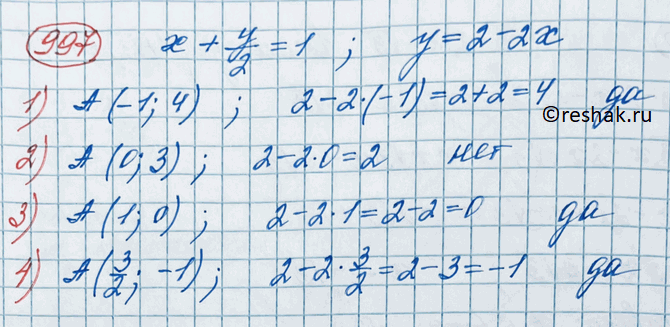 997 x + y/2 = 1 ; y = 2 - 2x
1) A (-1; 4) ; 2 - 2·(-1) = 2 + 2 = 4 да
©reshak.ru
2) A (0; 3) ; 2 - 2·0 = 2 нет
3) A (1; 0) ; 2 - 2·1 = 2 - 2 = 0 да
4) A (3/2; -1) ; 2 - 2·3/2 = 2 - 3 = -1 да